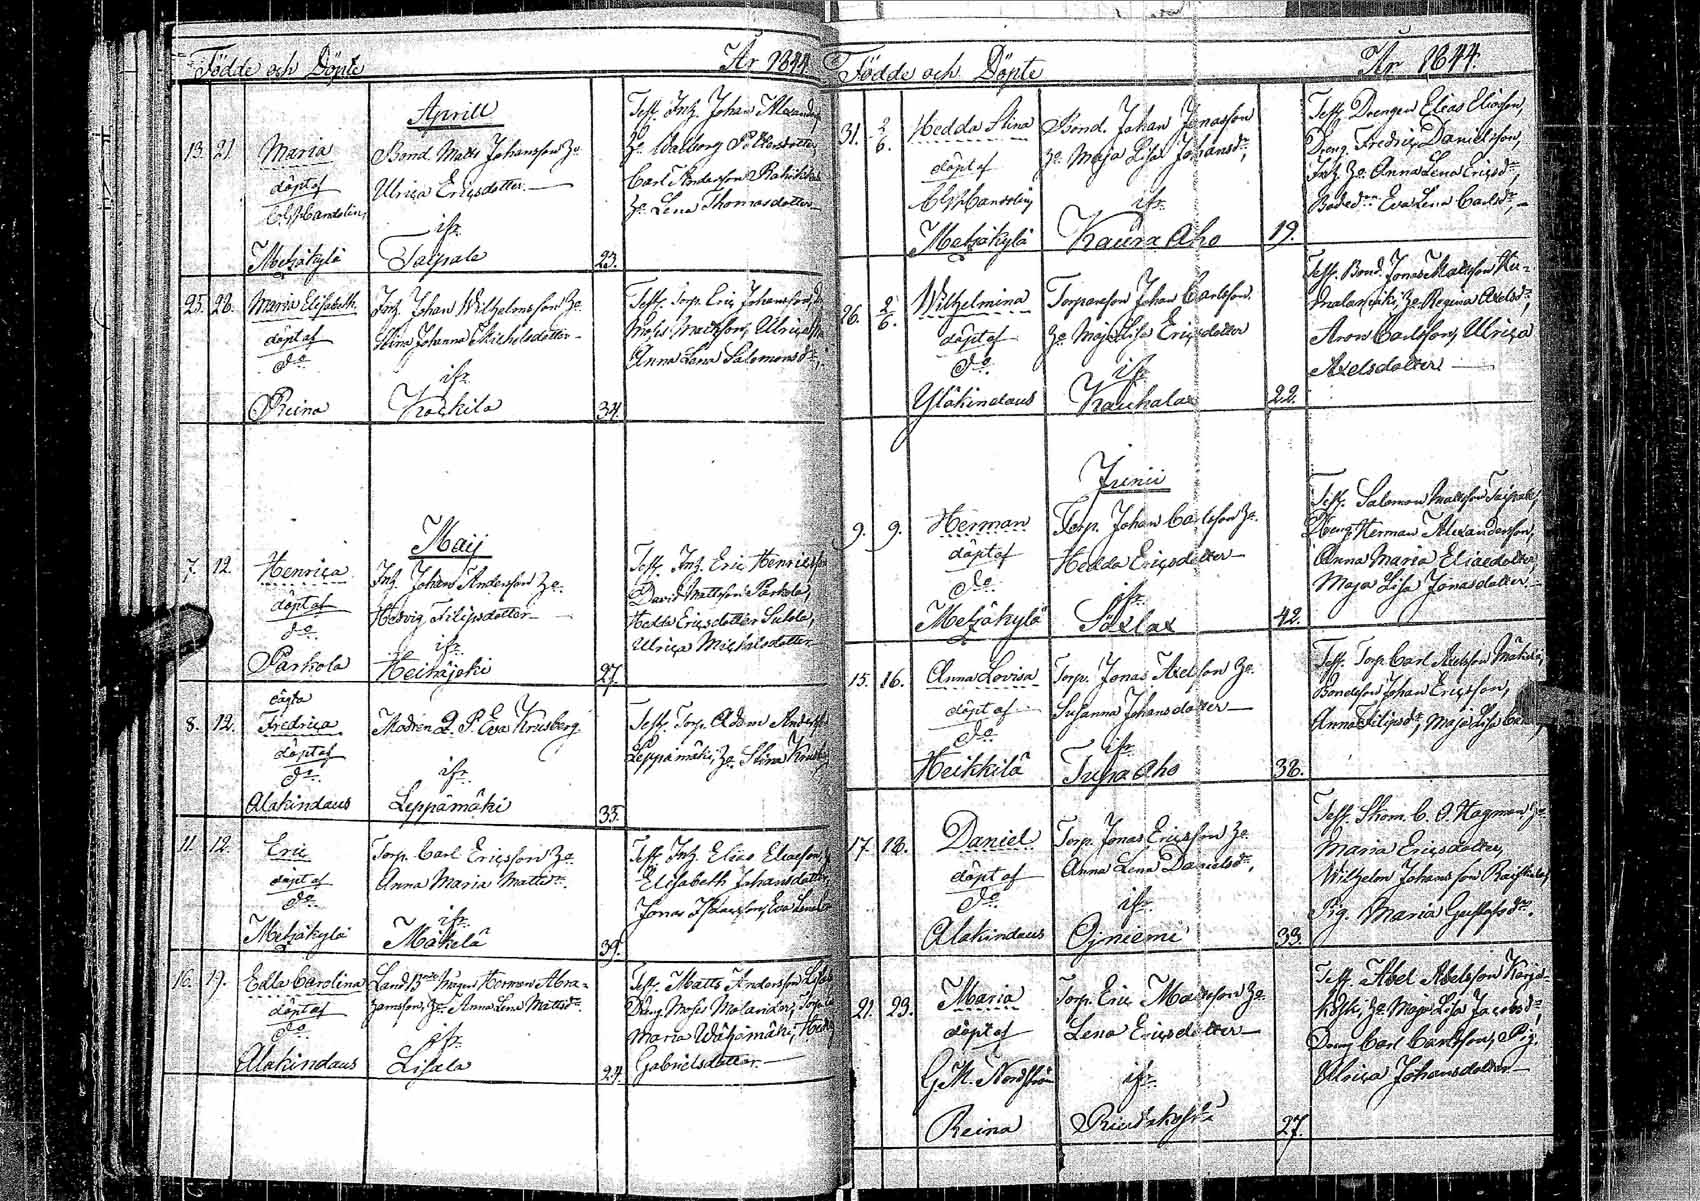 Födde och Döpte År 1844.
Aprill
13. 21. Maria
döpt af
Metzäkylä
Bond. Matts Johansson Ho.
Ulrica Ericsdotter.
ifr.
Taipale
23.
Test. Inh. Johan Alexanders
Ho. Walborg
Carl Andersson
Ho. Lena Thomasdotter
25. 28. Maria Elisabeth
döpt af
do
Reina
Inh. Johan Wilhelmsson Ho.
Stina Johanna Michelsdotter
ifr.
Koskila
34.
Test. Torp. Eric Johansson,
Moses Mattsson, Ulrica
Anna Lena Salomonsdr.
Maij
7. 12. Henrica
döpt af
do
Parkola
Inh. Johan Andersson Ho.
Hedvig Filipsdotter
ifr.
Heikäjoki
27.
Test. Inh. Eric Henricsson
David Mattsson Parkola,
Hedda Ericsdotter
Ulrica Michelsdotter
8. 12. oägta
Fredrica
döpt af
do
Alakindaus
Modren Q. P. Eva Krusberg
ifr.
Leppämäki
33.
Test. Torp. Adam Anderss
Leppämäki, Ho. Stina
11. 12. Eric
döpt af
do
Metzäkylä
Torp. Carl Ericsson Ho.
Anna Maria Mattsdr.
ifr.
Mäkelä
39.
Test. Inh. Elias Eliasson,
Elisabeth Johansdotter,
Jonas Eva Lena
16. 19. Edla Carolina
döpt af
do
Alakindaus
Herman Abra-
hamsson, Ho. Anna Lena Mattsdr.
ifr.
Lisala
24.
Test. Matts Andersson
Dreng Moses Malander,
Maria
Gabrielsdotter
Födde och Döpte År 1844.
31. 2/6. Hedda Stina
döpt af
Metzäkylä
Bond. Johan Jonasson
Ho. Maja Lisa Johansdr,
ifr.
Kaura Aho
19.
Test. Drengen Elias Eliasson,
Dreng Fredric Danielsson,
Inh. Ho. Anna Lena Ericsdr,
Eva Lena Carlsdr,
26. 2/6. Wilhelmina
döpt af
do
Yläkindaus
Torparson Johan Carlsson
Ho. Maja Lisa Ericsdotter
ifr.
Kauhalax
22.
Test. Bond. Jonas Mattsson
Ho. Regina Axelsdr,
Aron Carlsson, Ulrica
Axelsdotter
Junii
9. 9. Herman
döpt af
do
Metzäkylä
Torp. Johan Carlsson Ho.
Hedda Ericsdotter
ifr.
42.
Test. Salomon Mattsson Taipale,
Dreng Herman Alexandersson,
Anna Maria Eliaedotter,
Maja Lisa Jonasdotter
15. 16. Anna Lovisa
döpt af
do
Heikkilä
Torp. Jonas Axelsson Ho.
Susanna Johansdotter
ifr.
Tupa Aho
38.
Test. Torp. Carl Axelsson Mäkelä,
Bondeson Johan Ericsson,
Anna Filipsdr, Maja Lisa
17. 18. Daniel
döpt af
do
Alakindaus
Torp. Jonas Ericsson Ho.
Anna Lena Danielsdr,
ifr.
Ojniemi
33.
Test. Skom. C. O. Hagman Ho.
Maria Ericsdotter,
Wilhelm Johansson
Pig. Maria Gustafsdr.
21. 23. Maria
döpt af
G. M. Nordström
Reina
Torp. Eric Mattsson Ho.
Lena Ericsdotter
ifr.
27.
Test. Abel Abelsson
Ho. Maja Lisa Jacobsdr,
Dreng Carl Carlsson, Pig.
Ulrica Johansdotter